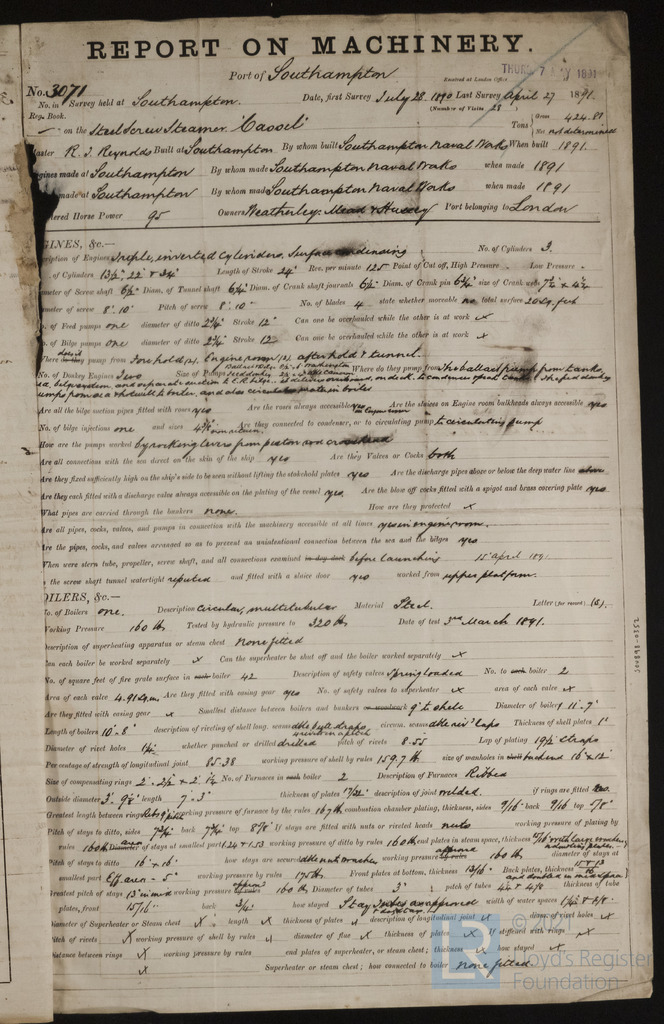 REPORT ON MACHINERY.
Port of Southampton
Received at London Office THURS. 7 MAY 1891
No. 3071
No. in Survey held at Southampton. Date, first Survey July 28 1890 Last Survey April 27 1891.
Reg. Book. (Number of Visits 28)
on the Steel Screw Steamer "Cassel" Tons Gross 424.81
Net not determined
Master R. J. Reynolds Built at Southampton By whom built Southampton Naval Works When built 1891.
Engines made at Southampton By whom made Southampton Naval Works when made 1891
made at Southampton By whom made Southampton Naval Works when made 1891
Horse Power 95 Owners Weatherley, Mead & Hussey Port belonging to London
GINES, &c.—
Description of Engines Triple, inverted Cylinders, Surface condensing No. of Cylinders 3.
of Cylinders 13½", 22" & 34" Length of Stroke 24" Rev. per minute 125 Point of Cut off, High Pressure Low Pressure
Diameter of Screw shaft 6½" Diam. of Tunnel shaft 6¼" Diam. of Crank shaft journals 6½" Diam. of Crank pin 6¾" size of Crank webs
Diameter of screw 8'.10" Pitch of screw 8'.10" No. of blades 4 state whether moveable no total surface 20 Sq. feet
No. of Feed pumps one diameter of ditto 2¾" Stroke 12" Can one be overhauled while the other is at work x
No. of Bilge pumps one diameter of ditto 2¾" Stroke 12" Can one be overhauled while the other is at work x
Where do they pump from Fore hold (2), Engine room (2) after hold & tunnel.
No. of Donkey Engines Two Size of Pumps Where do they pump from The ballast pump from tanks,
sea, bilge system and separate suction to E.R. bilge. delivers overboard, on deck, to condenser
pumps from sea & hotwell to boiler, and also circulates water in boiler
Are all the bilge suction pipes fitted with roses yes Are the roses always accessible yes Are the sluices on Engine room bulkheads always accessible yes
No. of bilge injections one and sizes Are they connected to condenser, or to circulating pump to circulating pump
How are the pumps worked by rocking levers from piston rod crosshead
Are all connections with the sea direct on the skin of the ship yes Are they Valves or Cocks both
Are they fixed sufficiently high on the ship's side to be seen without lifting the stokehold plates yes Are the discharge pipes above or below the deep water line above
Are they each fitted with a discharge valve always accessible on the plating of the vessel yes Are the blow off cocks fitted with a spigot and brass covering plate yes
What pipes are carried through the bunkers none. How are they protected x
Are all pipes, cocks, valves, and pumps in connection with the machinery accessible at all times yes in engine room.
Are the pipes, cocks, and valves arranged so as to prevent an unintentional connection between the sea and the bilges yes
When were stern tube, propeller, screw shaft, and all connections examined in dry dock before launching 15 April 1891.
Is the screw shaft tunnel watertight reputed and fitted with a sluice door yes worked from upper platform.
OILERS, &c.—
No. of Boilers one. Description circular, multitubular Material Steel. Letter (for record) (S).
Working Pressure 160 lb Tested by hydraulic pressure to 320 lb Date of test 3rd March 1891.
Description of superheating apparatus or steam chest none fitted
Can each boiler be worked separately x Can the superheater be shut off and the boiler worked separately x
No. of square feet of fire grate surface in each boiler 42 Description of safety valves Spring loaded No. to each boiler 2
Area of each valve 4.91 sq. ins. Are they fitted with easing gear yes No. of safety valves to superheater x area of each valve x
Are they fitted with easing gear x Smallest distance between boilers and bunkers or woodwork 9" to shell Diameter of boiler 11'.7"
Length of boilers 10'.8" description of riveting of shell long. seams dble butt straps circum. seams dble rivd laps Thickness of shell plates 1"
Diameter of rivet holes whether punched or drilled drilled pitch of rivets 8.55 Lap of plating 19½ Straps
Percentage of strength of longitudinal joint 85.38 working pressure of shell by rules 159.7 lb size of manholes in shell 16" x 12"
Size of compensating rings No. of Furnaces in each boiler 2 Description of Furnaces Ribbed
Outside diameter length 7'.3" thickness of plates 17/32" description of joint welded. if rings are fitted
Greatest length between rings working pressure of furnace by the rules 167 lb combustion chamber plating, thickness, sides 9/16" back 9/16 top
Pitch of stays to ditto, sides back top If stays are fitted with nuts or riveted heads nuts working pressure of plating by
rules 160 lb area of stays at smallest part 1.24 & 1.53 working pressure of ditto by rules 160 lb end plates in steam space, thickness
Pitch of stays to ditto 16" x 16" how stays are secured dble nuts & washers working pressure 160 lb diameter of stays at
smallest part Eff. area - 5" working pressure by rules 175 lb Front plates at bottom, thickness 13/16" Back plates, thickness
Greatest pitch of stays working pressure 160 lb Diameter of tubes 3" pitch of tubes thickness of tube
plates, front 15/16" back 3/4" how stayed Stay tubes as approved width of water spaces
Diameter of Superheater or Steam chest x length x thickness of plates x description of longitudinal joint x diam. of rivet holes x
Pitch of rivets x working pressure of shell by rules x diameter of flue x thickness of plates x If stiffened with rings x
Distance between rings x working pressure by rules end plates of superheater, or steam chest; thickness x how stayed x
x Superheater or steam chest; how connected to boiler none fitted.
© 2021
Lloyd's Register
Foundation